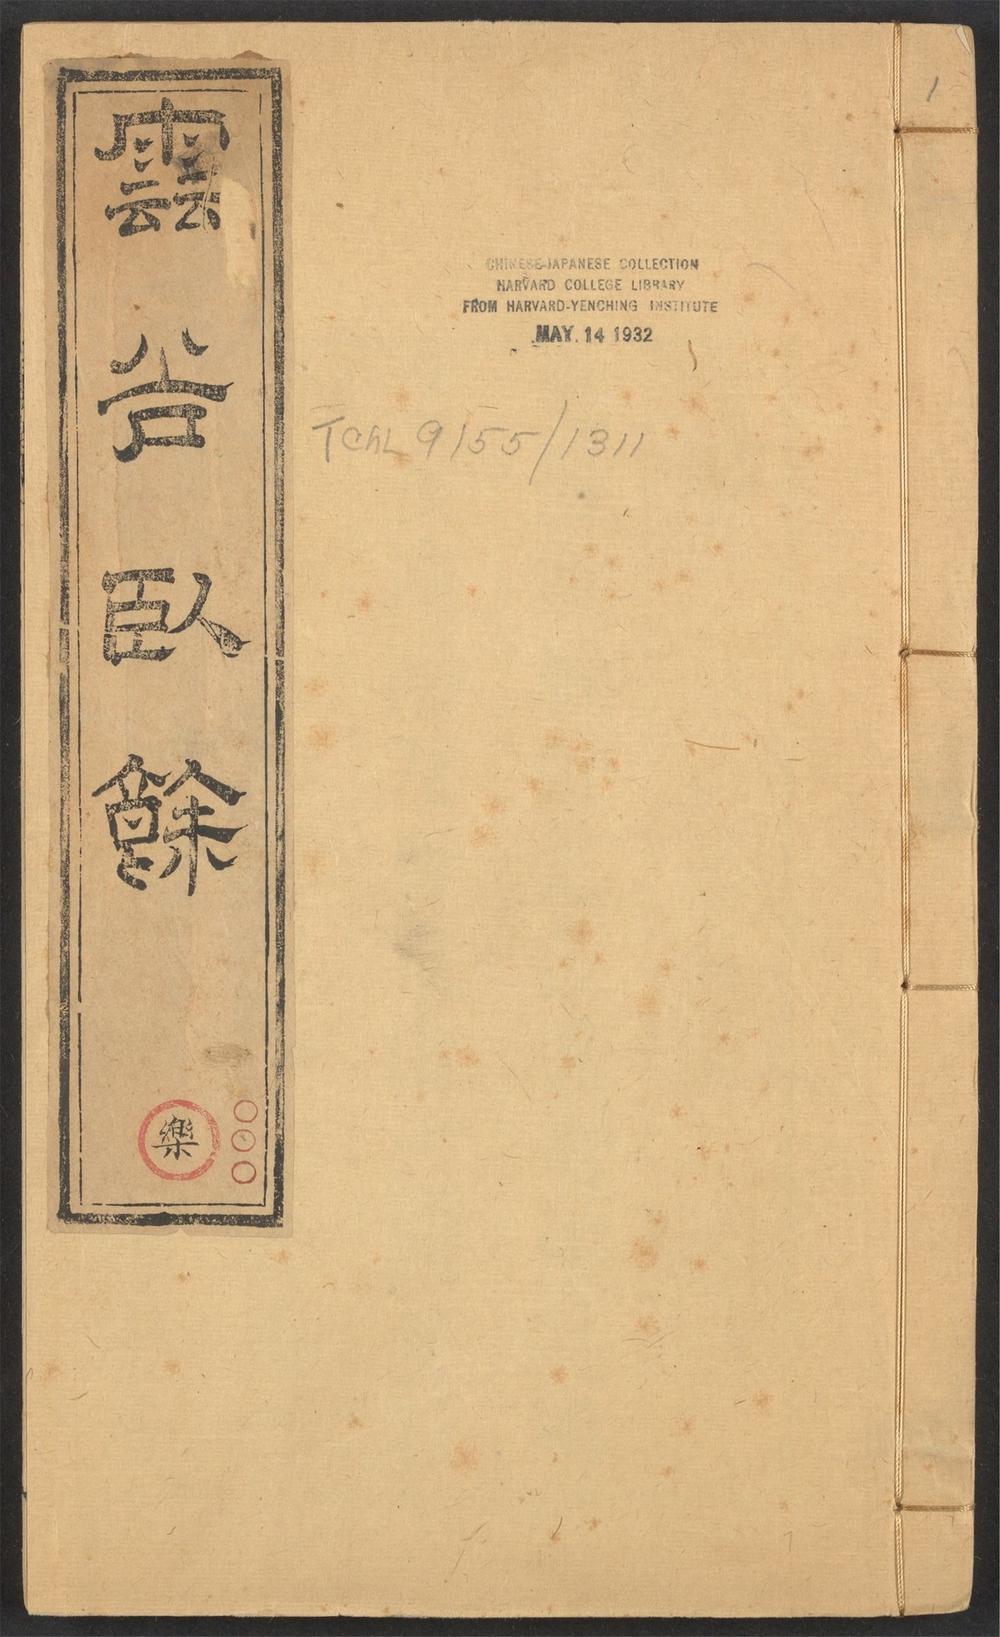 雲谷臥餘
樂
CHINESE-JAPANESE COLLECTION
HARVARD COLLEGE LIBRARY
FROM HARVARD-YENCHING INSTITUTE
MAY. 14 1932
TCHL 9155/1311
1